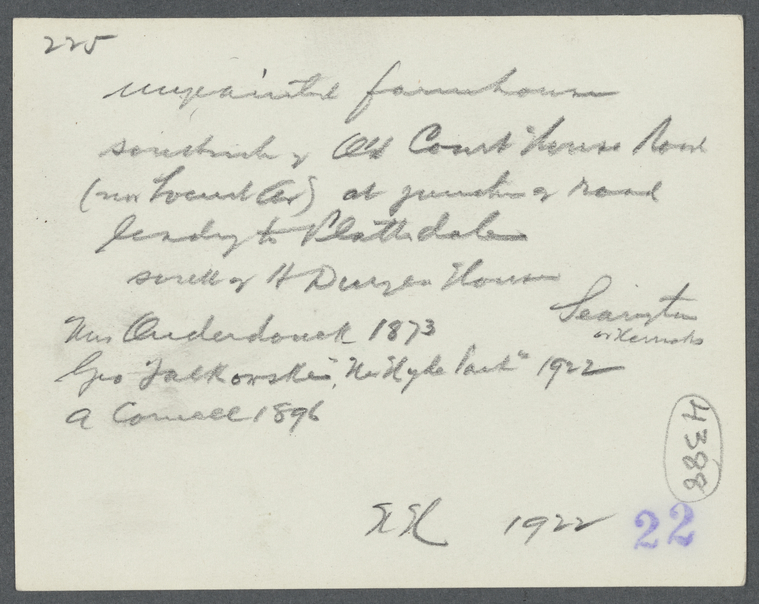 225
unpainted farmhouse
south side of Old Court House Road
(now Locust Av) at junction of road
leading to Plattsdale
south of H Duryea House
Searington
or Herricks
Mrs Onderdonck 1873
Geo Falkowski, "New Hyde Park" 1922
A Cornell 1896
4388
1922 22